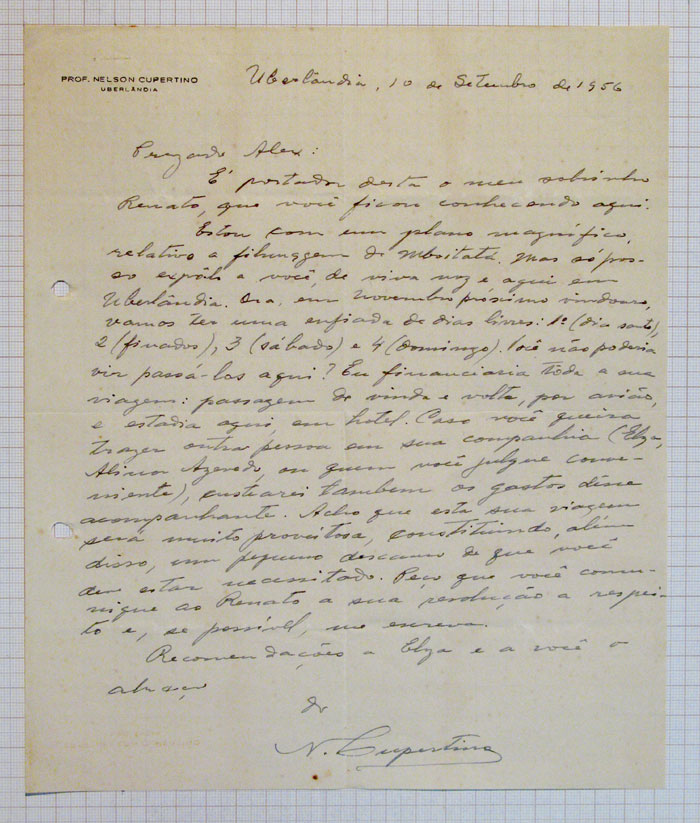 PROF. NELSON CUPERTINO
UBERLÂNDIA
Uberlândia, 10 de Setembro de 1956
Prezado Alex:
É portador desta o meu sobrinho
Renato, que você ficou conhecendo aqui.
Estou com um plano magnífico,
relativo a filmagem de Mboitatá. Mas só pos-
so expô-lo a você, de viva voz e aqui em
Uberlândia. Ora, em novembro próximo vindouro,
vamos ter uma enfiada de dias livres: 1º (dia santo),
2 (finados), 3 (sábado) e 4 (domingo). Você não poderia
vir passá-los aqui? Eu financiaria tôda a sua
viagem: passagem de vinda e volta, por avião,
e estadia aqui, em hotel. Caso você queira
trazer outra pessoa em sua companhia (Elza,
Alinor Azevedo, ou quem você julgue conve-
niente), custearei tambem os gastos dêsse
acompanhante. Acho que esta sua viagem
será muito proveitosa, constituindo, além
disso, um pequeno descanso de que você
deve estar necessitado. Peço que você comu-
nique ao Renato a sua resolução a respei-
to e, se possível, me escreva.
Recomendações a Elza e a você o
abraço
do
N. Cupertino